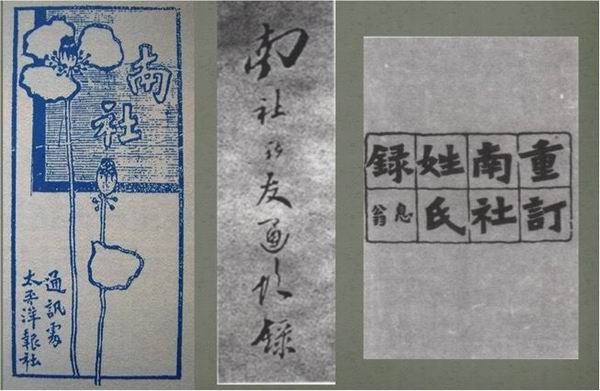 南社
通訊處
太平洋報社
南社社友通訊録
重訂
南社
姓氏
録
息翁